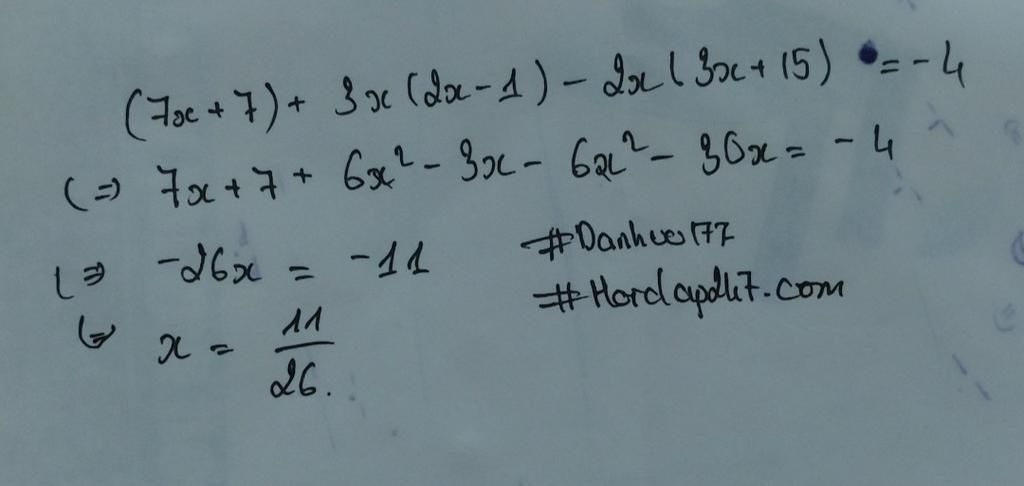 (7x + 7) + 3x (2x - 1) - 2x (3x + 15) = - 4
(=) 7x + 7 + 6x² - 3x - 6x² - 30x = - 4
(=) -26x = -11
#Danhvo177
(=) x = 11/26.